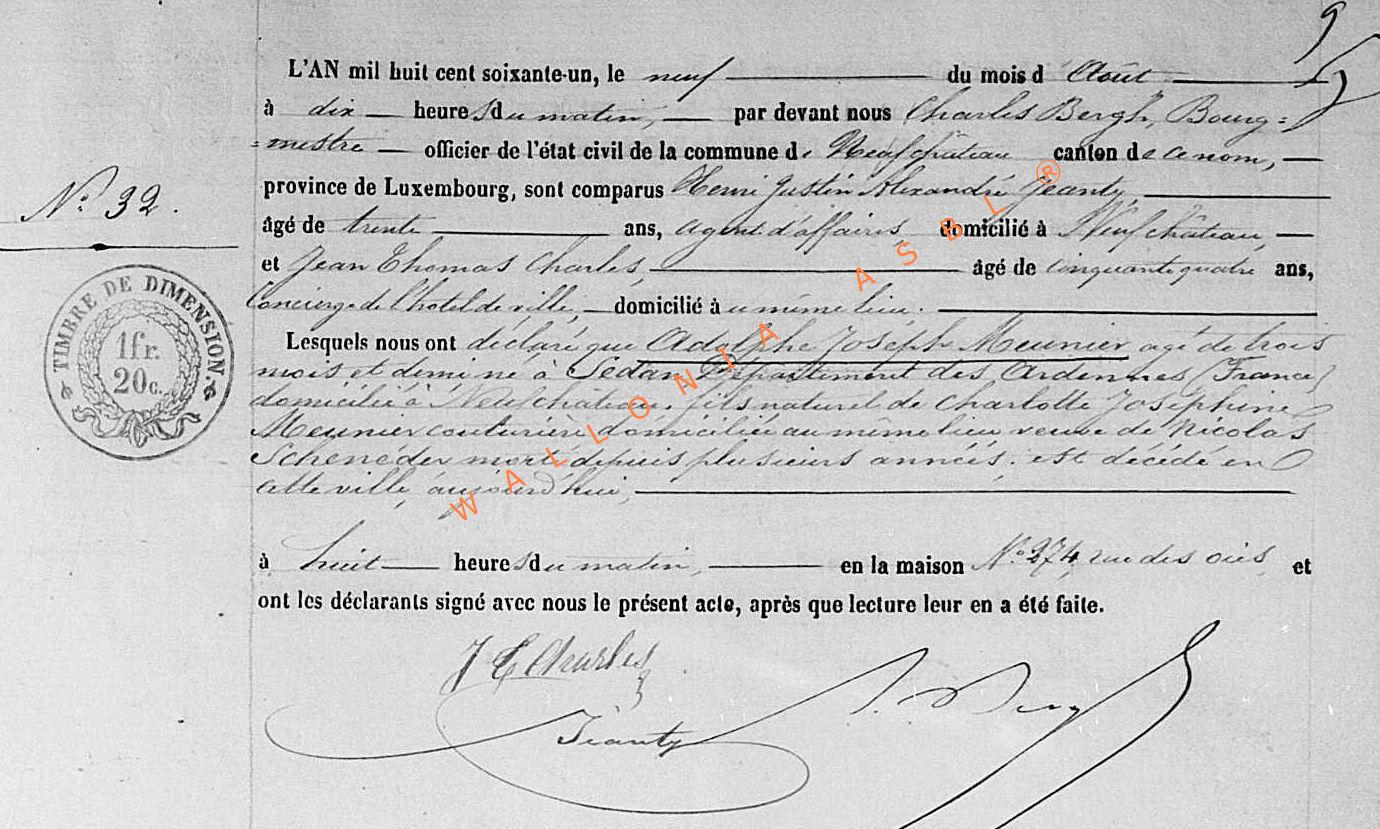 9
L'AN mil huit cent soixante-un, le neuf du mois d'Août
à dix heures du matin, par devant nous Charles Bergh, Bourg=
=mestre officier de l'état civil de la commune de Neufchâteau canton de ce nom,
province de Luxembourg, sont comparus Henri Justin Alexandre Jeanty,
N.º 32.
âgé de trente ans, agent d'affaires, domicilié à Neufchâteau,
et Jean Thomas Charles, âgé de cinquante quatre ans,
Concierge de l'hotel de ville, domicilié au même lieu.
Lesquels nous ont déclaré que Adolphe Joseph Meunier agé de trois
mois et demi né à Sedan Département des Ardennes (France)
domicilié à Neufchâteau, fils naturel de Charlotte Joséphine
Meunier couturière domiciliée au même lieu veuve de Nicolas
Scheneder mort depuis plusieurs années, est décédé en
cette ville, aujourd'hui,
à huit heures du matin, en la maison Nº 274, rue des oies, et
ont les déclarants signé avec nous le présent acte, après que lecture leur en a été faite.
TIMBRE DE DIMENSION.
1fr.
20c.
J T Charles
Jeanty
WALLONIA ASBL ®